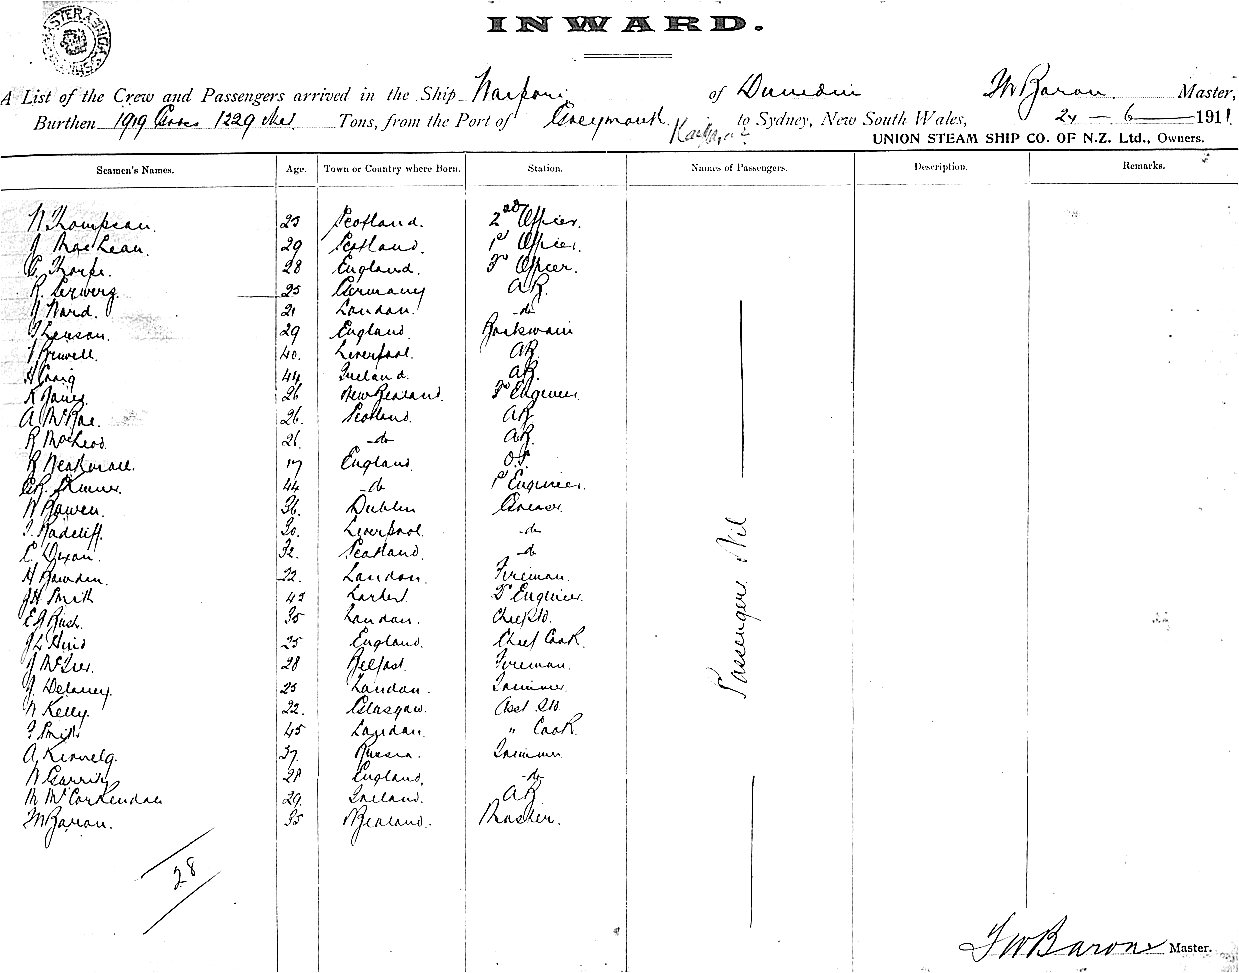 INWARD.
A List of the Crew and Passengers arrived in the Ship of Dunedin Baron Master,
Burthen 1919 Gross 1229 Net Tons, from the Port of Greymouth to Sydney, New South Wales, 24 - 6 1911
UNION STEAM SHIP CO. OF N.Z. Ltd., Owners.
Seamen's Names. Age. Town or Country where Born. Station. Names of Passengers. Description. Remarks.
N Thompson. 23 Scotland. 2nd Officer.
J MacLean. 29 Scotland. 1st Officer.
G Thorpe. 28 England. 3rd Officer.
R. 25 Germany AB.
J Ward. 21 London. -do-
29 England. Boatswain
40. Liverpool. AB.
H Craig 44 Ireland. AB.
R Jones. 26 New Zealand. 3rd Engineer
A McRae. 26. Scotland. AB
R MacLeod. 26. -do- AB.
R 17 England. O.S.
44 -do 1st Engineer.
N Bowen. 36. Dublin Greaser.
Radcliff. 30. Liverpool. -do-
C Dixon. 32. Scotland. -do
H Bowden. 22. London. Fireman.
JH Smith 42 2nd Engineer.
EG Rush. 35 London. Chief Std.
JL 25 England. Chief Cook.
J 28 Belfast. Fireman.
J Delaney. 25 London. Trimmer
N Kelly. 22. Glasgow. Asst Std.
Smith 45 London. " Cook.
A. 37. Russia. Trimmer.
N Garrity 28 England. -do-
M 29. Ireland. AB
Baron. 35 N Zealand. Master.
Passengers Nil
28
Baron Master.